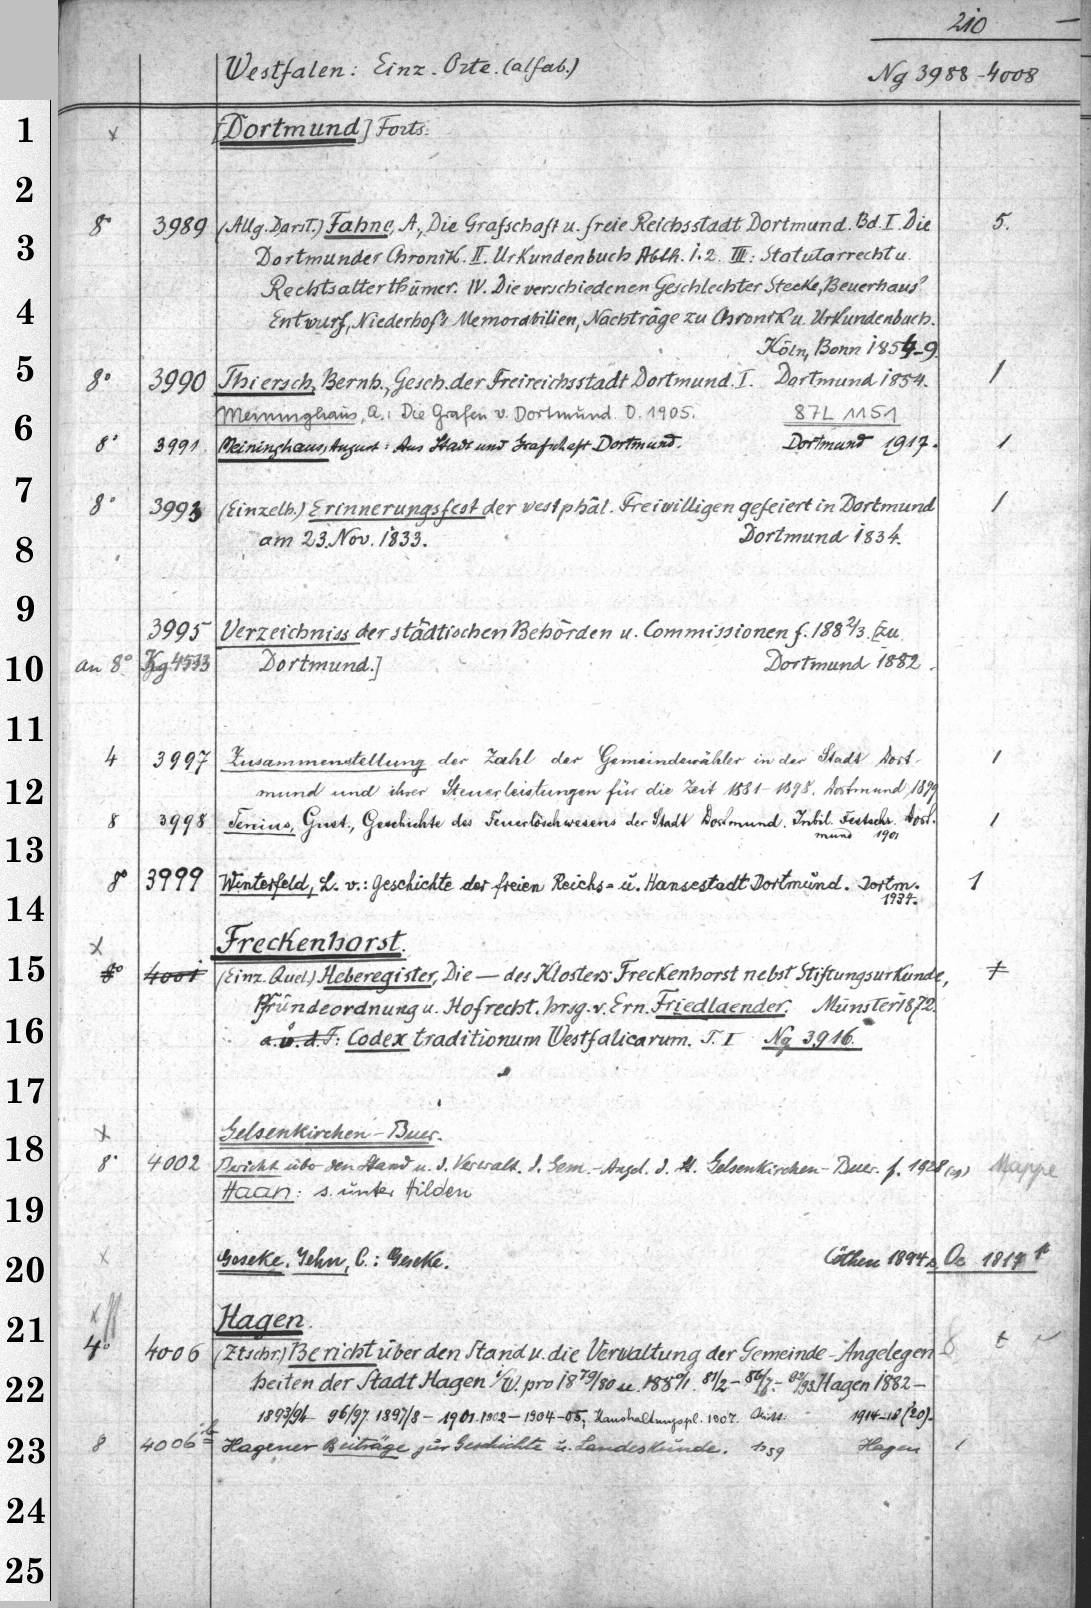 210 —
Westfalen: Einz. Orte. (alfab.) Ng 3988-4008
1 x [Dortmund] Forts.
2
8° 3989 (Allg. Darst.) Fahne, A., Die Grafschaft u. freie Reichsstadt Dortmund. Bd. I. Die 5.
3 Dortmunder Chronik. II. Urkundenbuch Abth. 1. 2. III: Statutarrecht u.
Rechtsalterthümer. IV. Die verschiedenen Geschlechter Stecke, Beuerhaus'
4 Entwurf, Niederhof's Memorabilien, Nachträge zu Chronik u. Urkundenbuch.
Köln, Bonn 1854-9
5 8° 3990 Thiersch, Bernh., Gesch. der Freireichsstadt Dortmund. I. Dortmund 1854. 1
Meininghaus, A.: Die Grafen v. Dortmund. D. 1905. 87L 1151
6 8° 3991 Meininghaus, August: Aus Stadt und Grafschaft Dortmund. Dortmund 1917. 1
7 8° 3993 (Einzelh.) Erinnerungsfest der westphäl. Freiwilligen gefeiert in Dortmund 1
8 am 23. Nov. 1833. Dortmund 1834.
9 3995 Verzeichniss der städtischen Behörden u. Commissionen f. 1882/3. [zu
10 an 8° Kg 4533 Dortmund.] Dortmund 1882.
11 4 3997 Zusammenstellung der Zahl der Gemeindewähler in der Stadt Dort- 1
12 mund und ihrer Steuerleistungen für die Zeit 1881-1898. Dortmund 1899
8 3998 Gust., Geschichte des Feuerlöschwesens der Stadt Dortmund. Jubil. Festschr. Dort- 1
13 mund 1901
8° 3999 Winterfeld, L. v.: Geschichte der freien Reichs- u. Hansestadt Dortmund. Dortm. 1
14 1934.
x Freckenhorst.
15 8° 4001 (Einz. Quel.) Heberegister, Die — des Klosters Freckenhorst nebst Stiftungsurkunde, 1
Pfründeordnung u. Hofrecht. hrsg. v. Ern. Friedlaender. Münster 1872.
16 a. u. d. T: Codex traditionum Westfalicarum. T. I Ng 3916.
17
x Gelsenkirchen-Buer.
18 8° 4002 Bericht über den Stand u. d. Verwalt. d. Gem.-Angel. d. St. Gelsenkirchen-Buer. f. 1928 Mappe
19 Haan: s. unter Hilden
20 x Geseke. Jehn, C.: Geseke. Cöthen 1894 Oc 1817
21 x Hagen.
4° 4006 (Ztschr.) Bericht über den Stand u. die Verwaltung der Gemeinde-Angelegen- 8 t
22 heiten der Stadt Hagen i/W. pro 1879/80 u. 1880/1. 81/2 - 86/7. - 92/93. Hagen 1882-
1893/96 - 96/97 1897/8 - 1901. 1902 - 1904-05; Haushaltungspl. 1907. 1914-18 (20).
23 8 4006 Hagener Beiträge zur Geschichte u. Landeskunde. Hagen 1
24
25